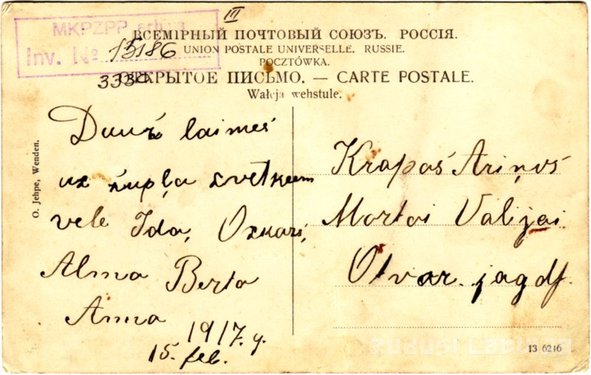 III
MKPZPP
Inv. № 15186
3330
ВСЕМІРНЫЙ ПОЧТОВЫЙ СОЮЗЪ. РОССІЯ.
UNION POSTALE UNIVERSELLE. RUSSIE.
POCZTÓWKA.
ОТКРЫТОЕ ПИСЬМО. — CARTE POSTALE.
Wałeja wehstule.
O. Jehpe, Wenden.
Dauds laimes
uz
vele Ida,
Alma Berta
Anna
1917. g.
15. feb.
Krapaś Ariņoś
Martai Valijai
Otvar. jagdf.
13 6246